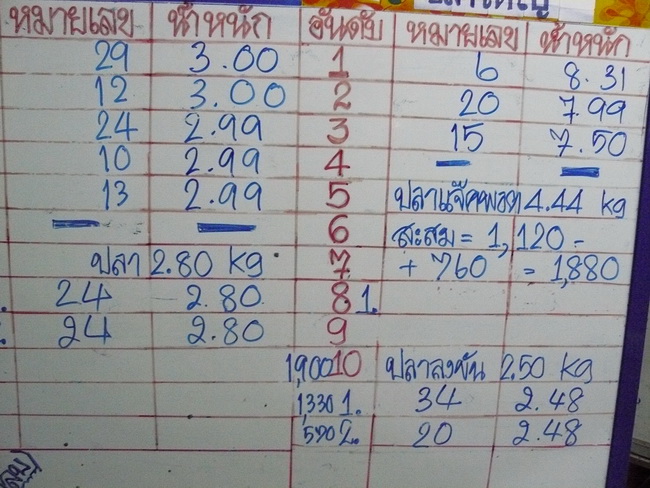 หมายเลข น้ำหนัก อันดับ หมายเลข น้ำหนัก
29 3.00 1 6 8.31
12 3.00 2 20 7.99
24 2.99 3 15 7.50
10 2.99 4 — —
13 2.99 5 ปลาแจ๊คพอต 4.44 kg
— — 6 สะสม = 1,120 -
ปลา 2.80 kg 7 + 760 = 1,880
24 2.80 8 1.
24 2.80 9
1,900 10 ปลาลงขัน 2.50 kg
1,330 1. 34 2.48
590 2. 20 2.48